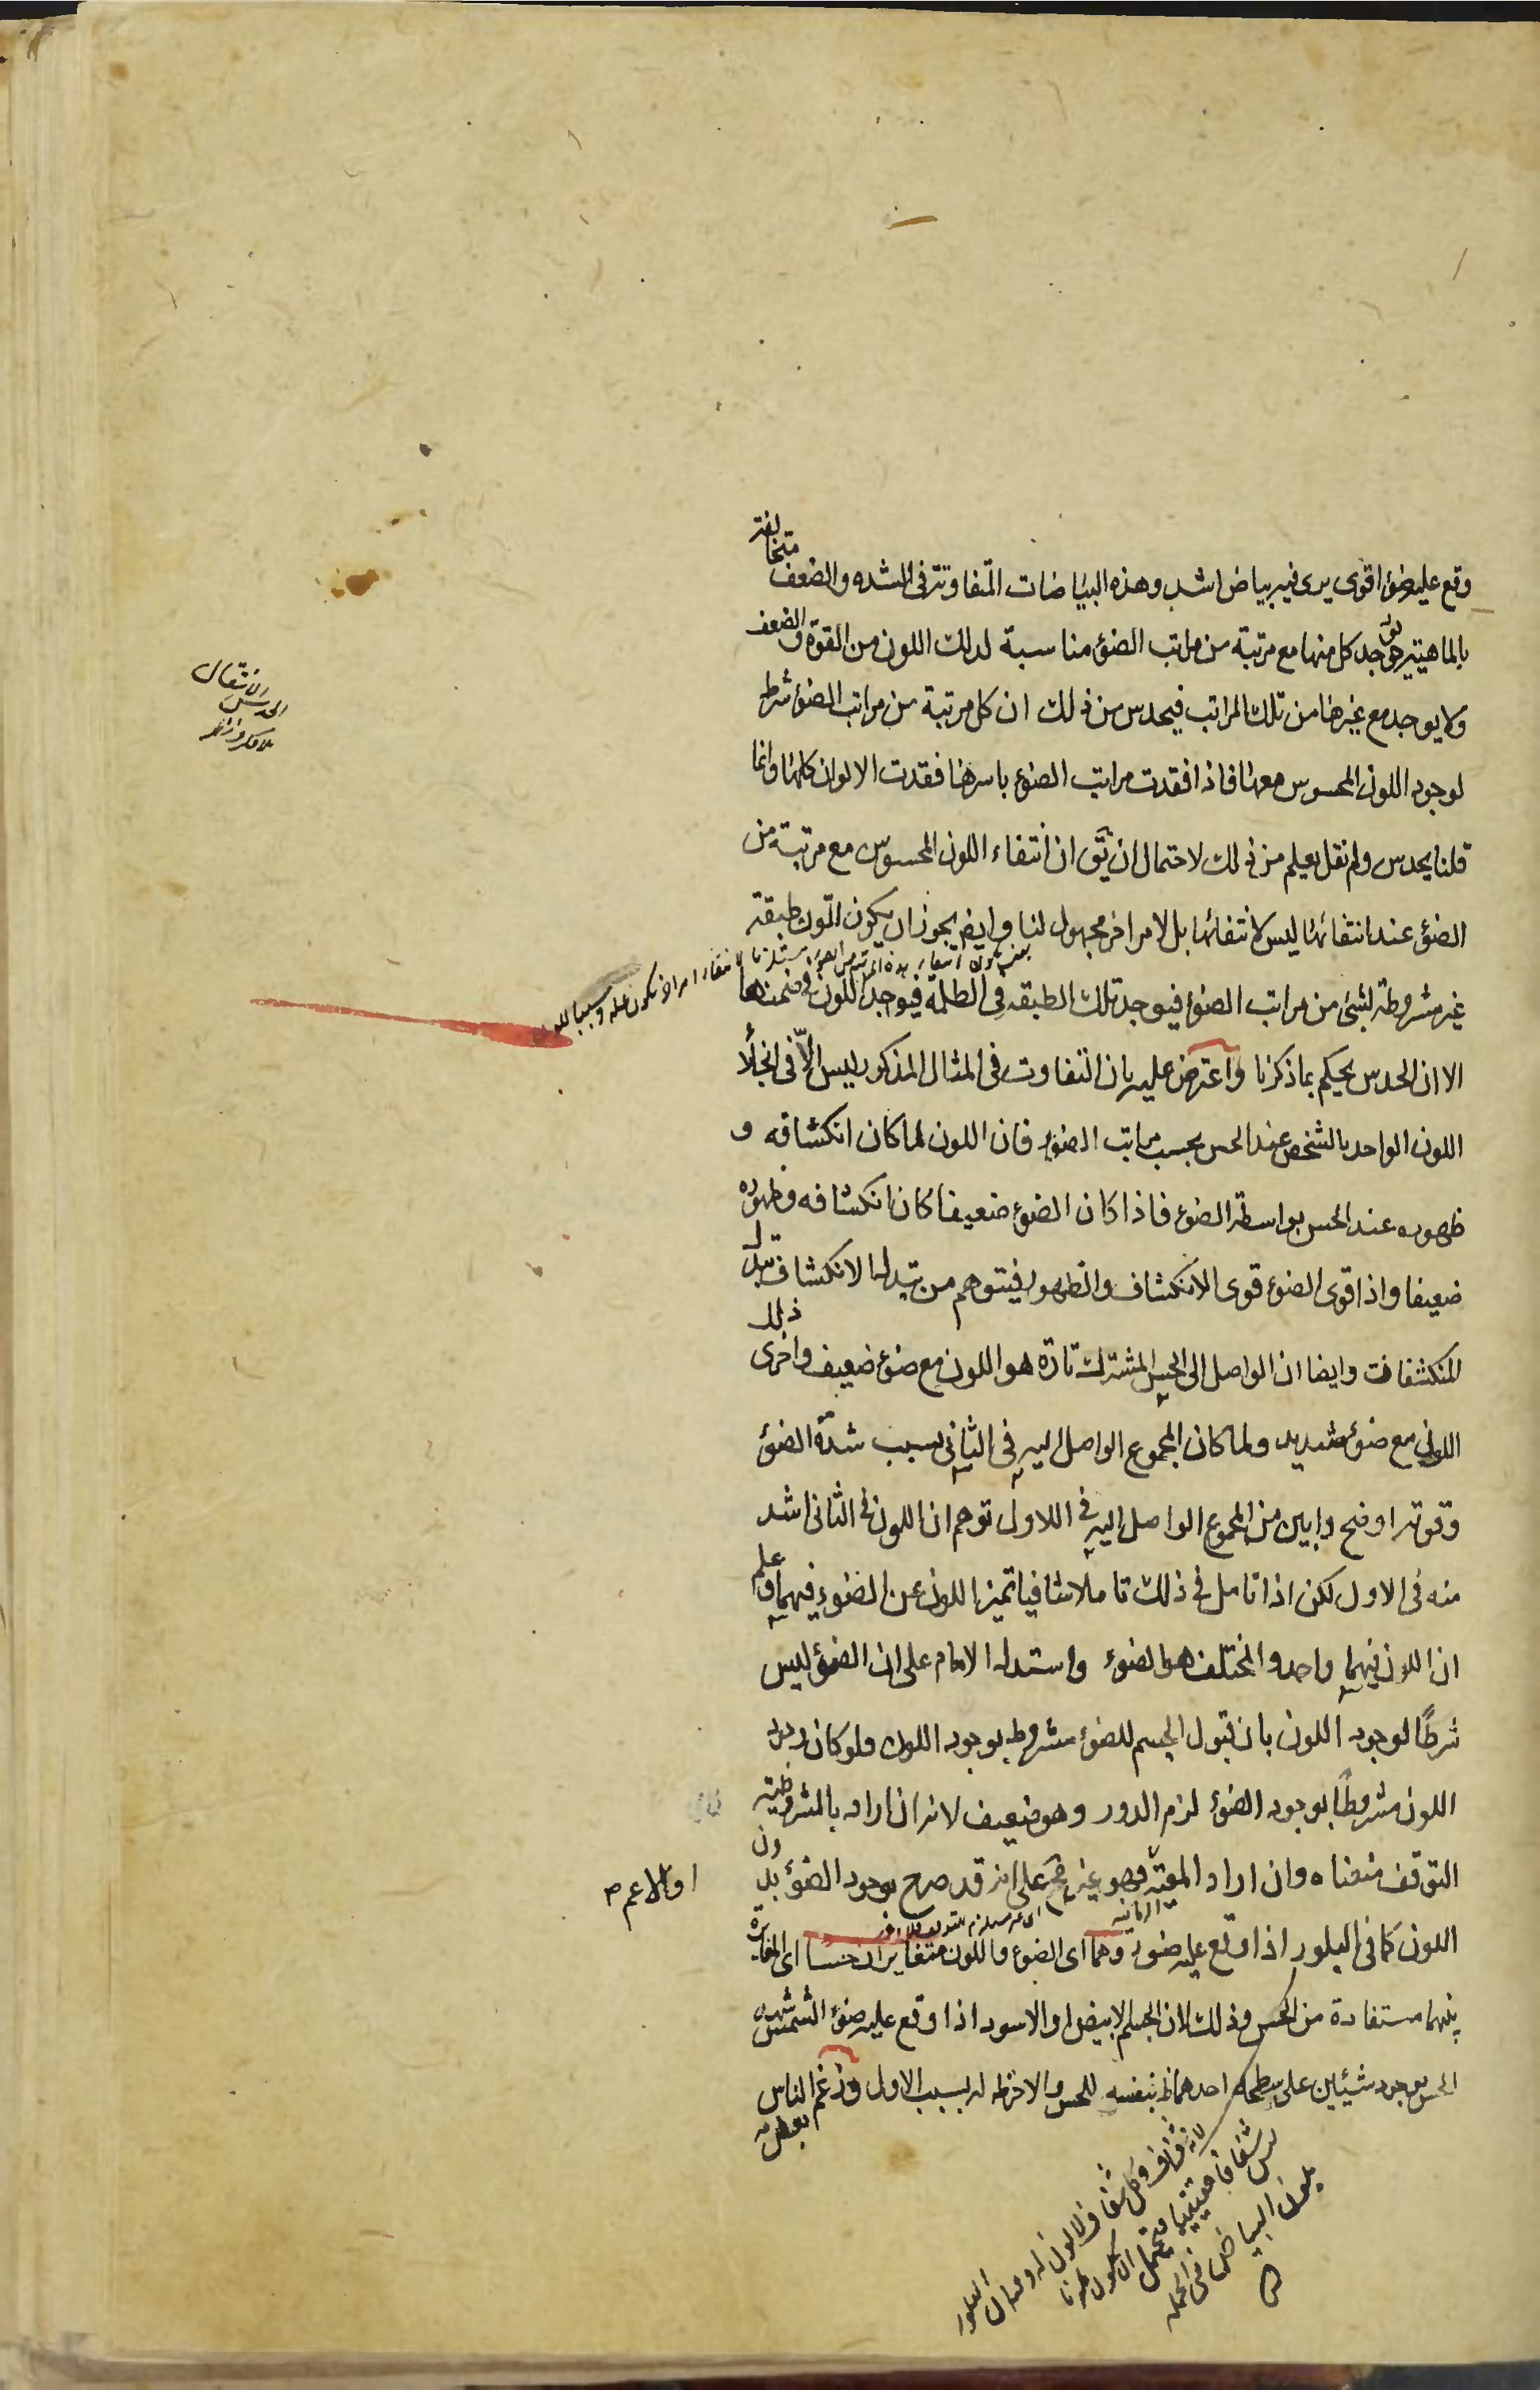 وقع عليه ضوء اقوى يرى فيه بياض اشد وهذه البياضات المتفاوتة فى الشده والضعف متخالفة
بالماهية يوجد كل منها مع مرتبة من مراتب الضوء مناسبة لذلك اللون من القوة والضعف
ولا يوجد مع غيرها من تلك المراتب فيحدس من ذلك ان كل مرتبة من مراتب الضوء شرط
لوجود اللون المحسوس معها فاذا فقدت مراتب الضوء باسرها فقدت الالوان كلها وانما
قلنا يحدس ولم نقل يعلم من ذلك لاحتمال ان يق ان انتفاء اللون المحسوس مع مرتبة من
الضوء عند انتفائها ليس لانتفائها بل لامر اخر مجهول لنا وايض يجوز ان يكون للون طبقة
غير مشروطة بشئ من مراتب الضوء فيوجد تلك الطبقه فى الظلمة فيوجد اللون فى ضمنها
الا ان الحدس يحكم بما ذكرنا واعترض عليه بان التفاوت فى المثال المذكور ليس الا فى انجلاء
اللون الواحد بالشخص عند الحس بحسب مراتب الضوء فان اللون لما كان انكشافه و
ظهوره عند الحس بواسطة الضوء فاذا كان الضوء ضعيفا كان انكشافه وظهوره
ضعيفا واذا قوى الضوء قوى الانكشاف والظهور فيتوهم من تبدل الانكشاف تبدل
المنكشف وايضا ان الواصل الى الحس المشترك تارة هو اللون مع ضوء ضعيف واخرى ذلك
اللون مع ضوء شديد ولما كان المجموع الواصل اليه فى الثانى بسبب شدة الضوء
وقوته اوضح وابين من المجموع الواصل اليه فى الاول توهم ان اللون فى الثانى اشد
منه فى الاول لكن اذا تامل فى ذلك تاملا شافيا تميز اللون عن الضوء فيهما وعلم
ان اللون فيهما واحد والمختلف هو الضوء واستدل الامام على ان الضوء ليس
شرطا لوجود اللون بان قبول الجسم للضوء مشروط بوجود اللون ولو كان وجود
اللون مشروطا بوجود الضوء لزم الدور وهو ضعيف لانه ان اراد بالمشروطية
التوقف منعناه وان اراد المعية فهو غير مح على انه قد صرح بوجود الضوء بدون
اللون كما فى البلور اذا وقع عليه ضوء وهما اى الضوء واللون متغايران حسا اى المغايرة
بينهما مستفادة من الحس وذلك لان الجسم الابيض او الاسود اذا وقع عليه ضوء الشمس شهد
الحس بوجود شيئين على سطحه احدهما ظ بنفسه للحس والاخر ظ له بسبب الاول وزعم الناس
بعض
الحدس الانتقال
بلا فكر ونظر
او الاعم م
الزمانية
لانه شفاف وكل شفاف لا لون له